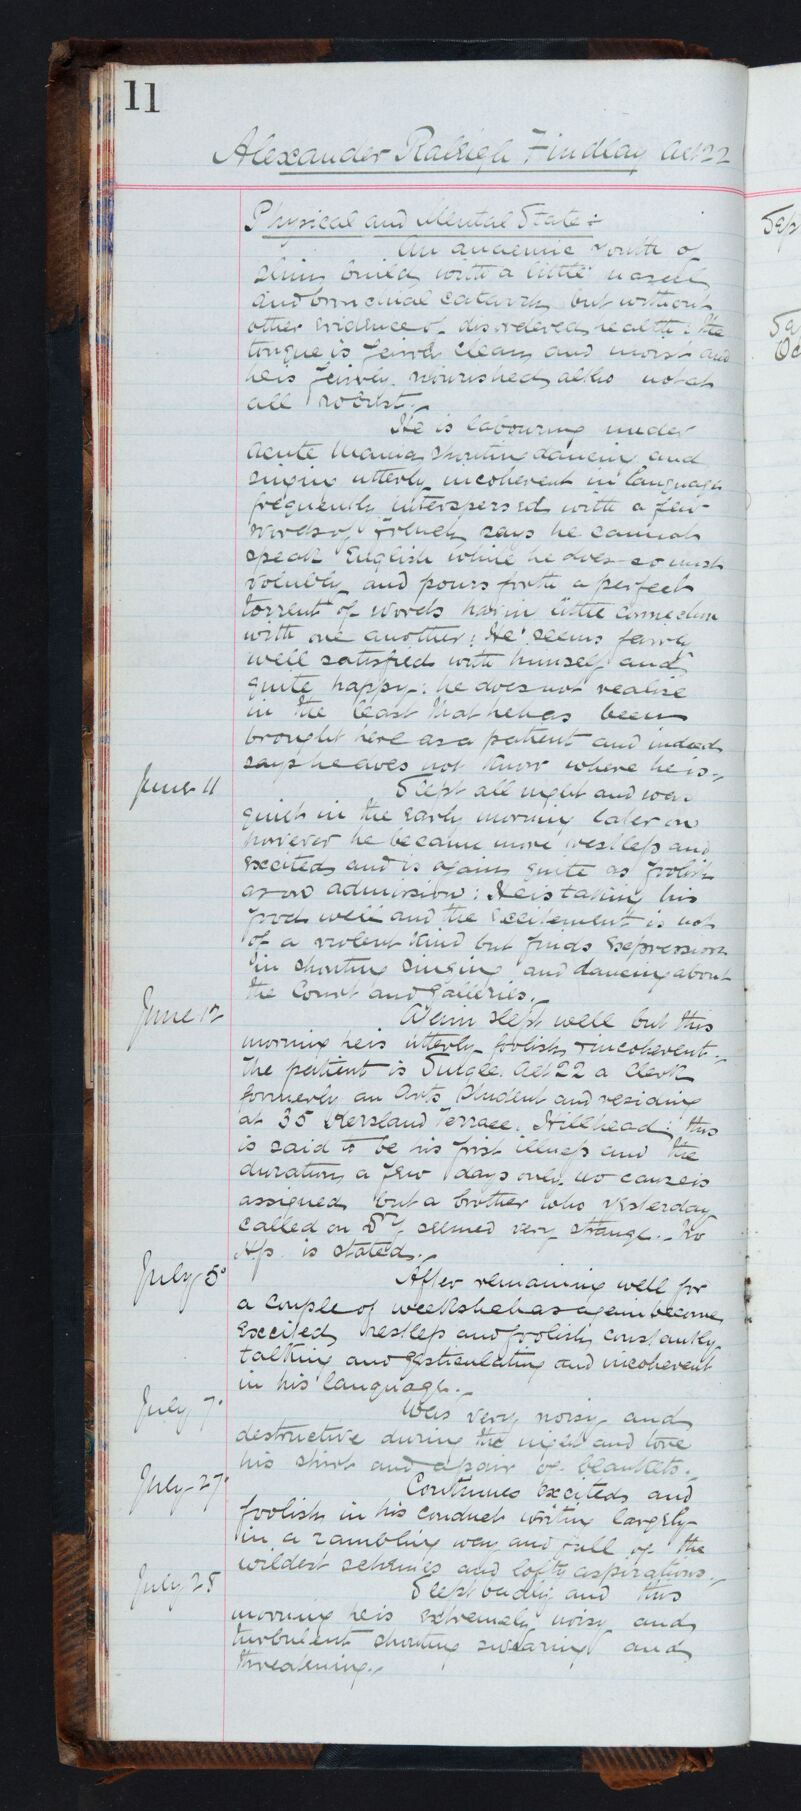 11
Alexander Raleigh Findlay aet 22
Physical and Mental State:
An anaemic youth of
slim build with a little nasal
and bronchial catarrh but without
other evidence of disordered health: the
tongue is fairly clean and moist and
he is fairly nourished altho not at
all robust.
He is labouring under
acute mania shouting dancing and
singing utterly incoherent in language
frequently interspersed with a few
words of French says he cannot
speak English while he does so most
volubly and pours forth a perfect
torrent of words having little connection
with one another: He seems fairly
well satisfied with himself and
quite happy: he does not realise
in the least that he has been
brought here as a patient and indeed
says he does not know where he is.
June 11
Slept all night and was
quiet in the early morning later on
however he became more restless and
excited and is again quite as foolish
as on admission: He is taking his
food well and the excitement is not
of a violent kind but finds expression
in shouting singing and dancing about
the Court and galleries.
June 12
Again slept well but this
morning he is utterly foolish & incoherent.
The patient is Single. Aet 22 a Clerk
formerly an Arts Student and residing
at 35 Kersland Terrace, Hillhead: this
is said to be his first illness and the
duration a few days only. no cause is
assigned but a brother who yesterday
called on Dr Y. seemed very strange. No
H/p. is stated.
July 5
After remaining well for
a couple of weeks he has again become
excited restless and foolish, constantly
talking and gesticulating and incoherent
in his language.
July 7.
Was very noisy and
destructive during the night and tore
his shirt and a pair of blankets.
July 27.
Continues excited and
foolish in his conduct writing largely
in a rambling way and full of the
wildest schemes and lofty aspirations.
July 28
Slept badly and this
morning he is extremely noisy and
turbulent shouting swearing and
threatening.
Sep
Oc